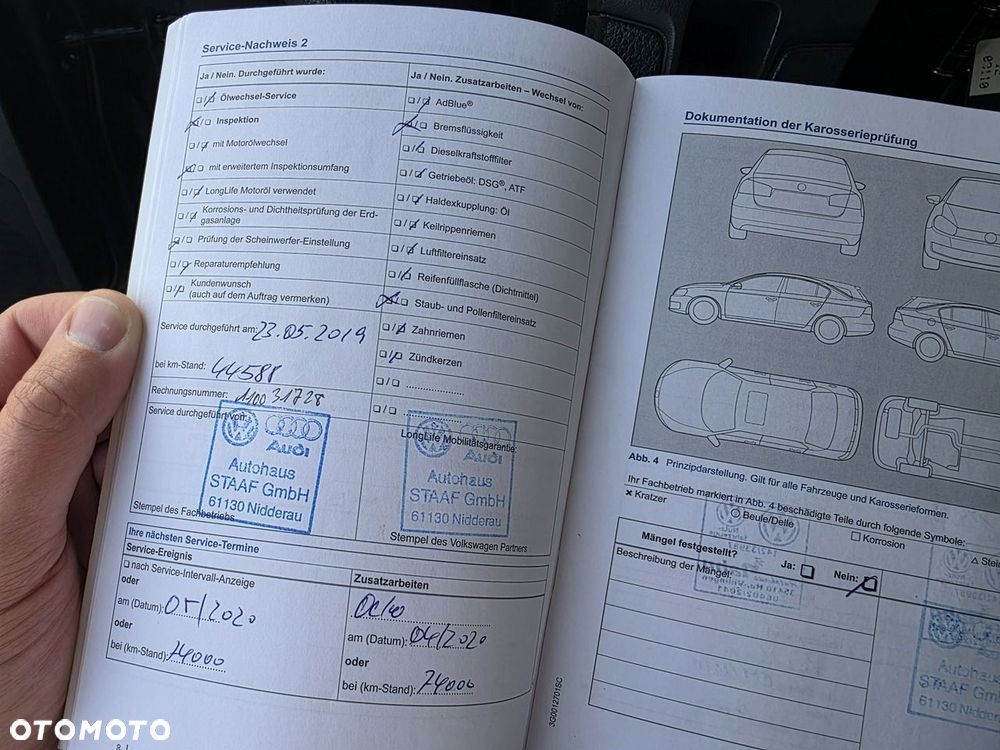 Service-Nachweis 2
Ja / Nein. Durchgeführt wurde:
Ölwechsel-Service
Inspektion
mit Motorölwechsel
mit erweitertem Inspektionsumfang
LongLife Motoröl verwendet
Korrosions- und Dichtheitsprüfung der Erd-
gasanlage
Prüfung der Scheinwerfer-Einstellung
Reparaturempfehlung
Kundenwunsch
(auch auf dem Auftrag vermerken)
Service durchgeführt am: 23.05.2019
bei km-Stand: 44588
Rechnungsnummer: 1100 31728
Service durchgeführt von:
Audi
Autohaus
STAAF GmbH
61130 Nidderau
Stempel des Fachbetriebs
Ja / Nein. Zusatzarbeiten – Wechsel von:
AdBlue®
Bremsflüssigkeit
Dieselkraftstofffilter
Getriebeöl: DSG®, ATF
Haldexkupplung: Öl
Keilrippenriemen
Luftfiltereinsatz
Reifenfüllflasche (Dichtmittel)
Staub- und Pollenfiltereinsatz
Zahnriemen
Zündkerzen
LongLife Mobilitätsgarantie:
Audi
Autohaus
STAAF GmbH
61130 Nidderau
Stempel des Volkswagen Partners
Ihre nächsten Service-Termine
Service-Ereignis
nach Service-Intervall-Anzeige
oder
am (Datum): 05/2020
oder
bei (km-Stand): 74000
Zusatzarbeiten
am (Datum): 04/2020
oder
bei (km-Stand): 74000
Dokumentation der Karosserieprüfung
Abb. 4 Prinzipdarstellung. Gilt für alle Fahrzeuge und Karosserieformen.
Ihr Fachbetrieb markiert in Abb. 4 beschädigte Teile durch folgende Symbole:
Kratzer
Beule/Delle
Korrosion
Mängel festgestellt?
Ja:
Nein:
Beschreibung der Mängel:
Autohaus
STAAF GmbH
61130 Nidderau
3G0012701SC
OTOMOTO